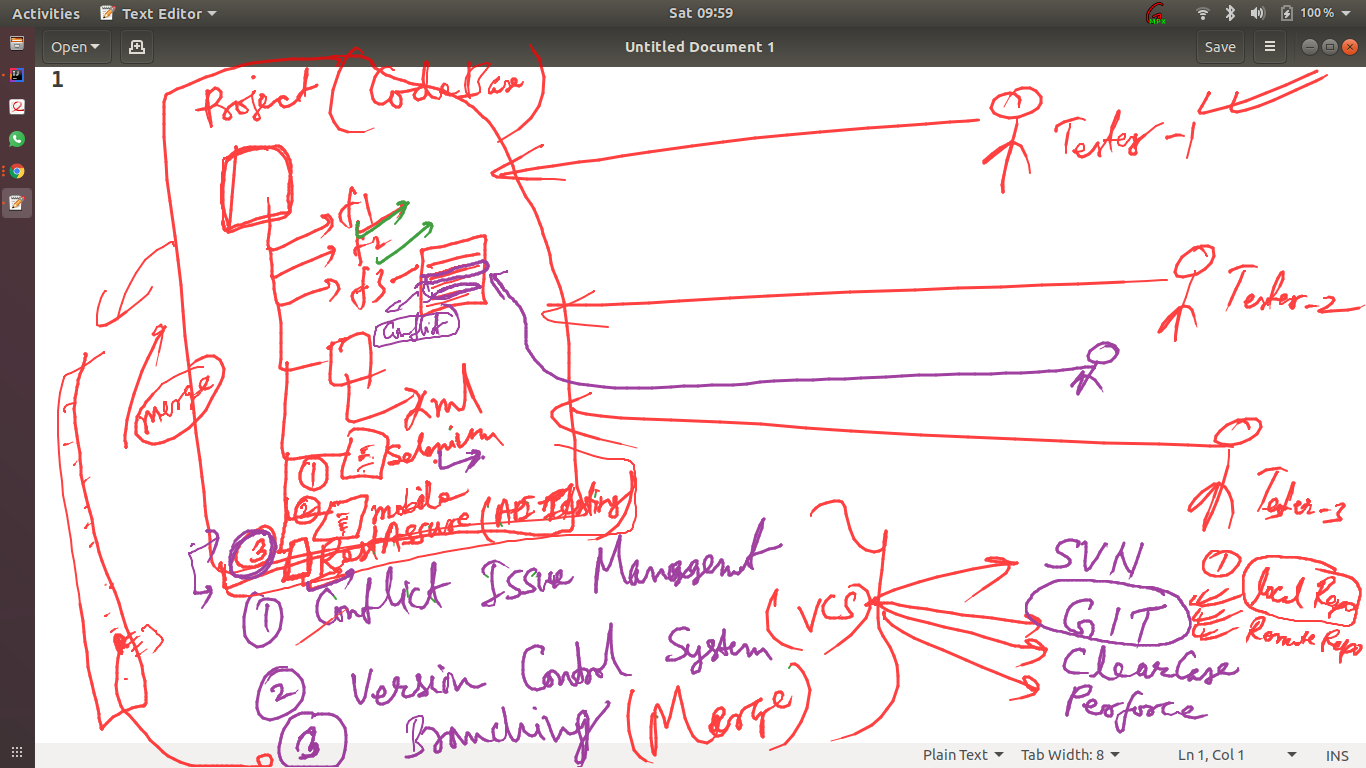 Activities Text Editor Sat 09:59 MPX 100 %
Open Untitled Document 1 Save
1
Project (CodeBase)
Tester-1
f1
f2
f3
Conflict
Tester-2
merge
xml
① Selenium
② mobile
③ RestAssure (API-Testing)
Tester-3
① Conflict Issue Managemnt
② Version Control System (VCS)
③ Branching (Merge)
SVN
GIT
ClearCase
Perforce
① local Repo
Remote Repo
Plain Text Tab Width: 8 Ln 1, Col 1 INS